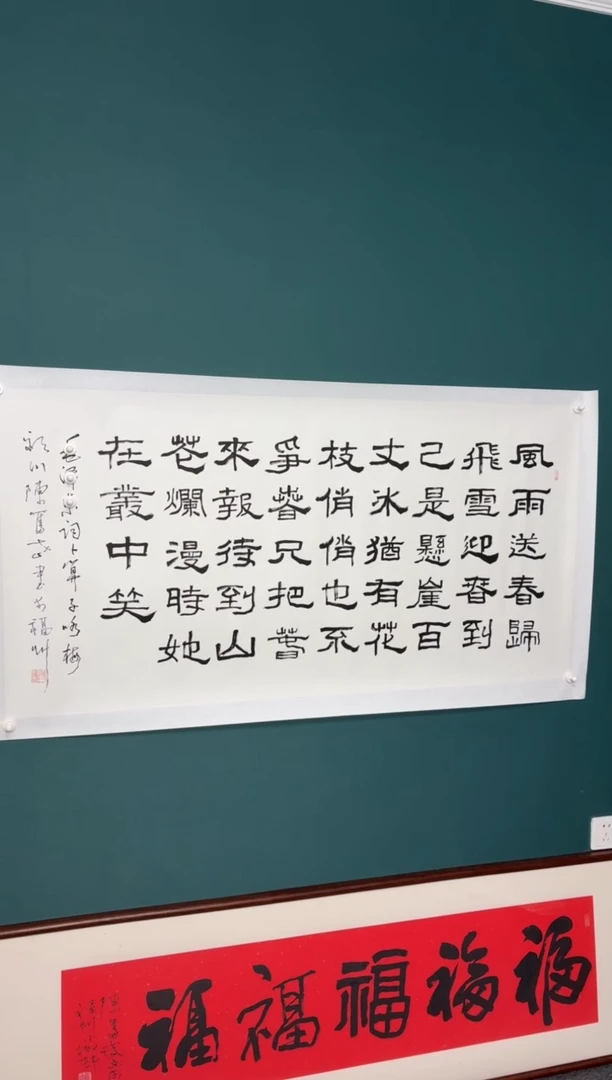 風雨送春歸
飛雪迎春到
已是懸崖百
丈冰猶有花
枝俏俏也不
爭春只把春
來報待到山
花爛漫時她
在叢中笑
毛澤東詞卜算子咏梅
陳書於福州
福福福福福